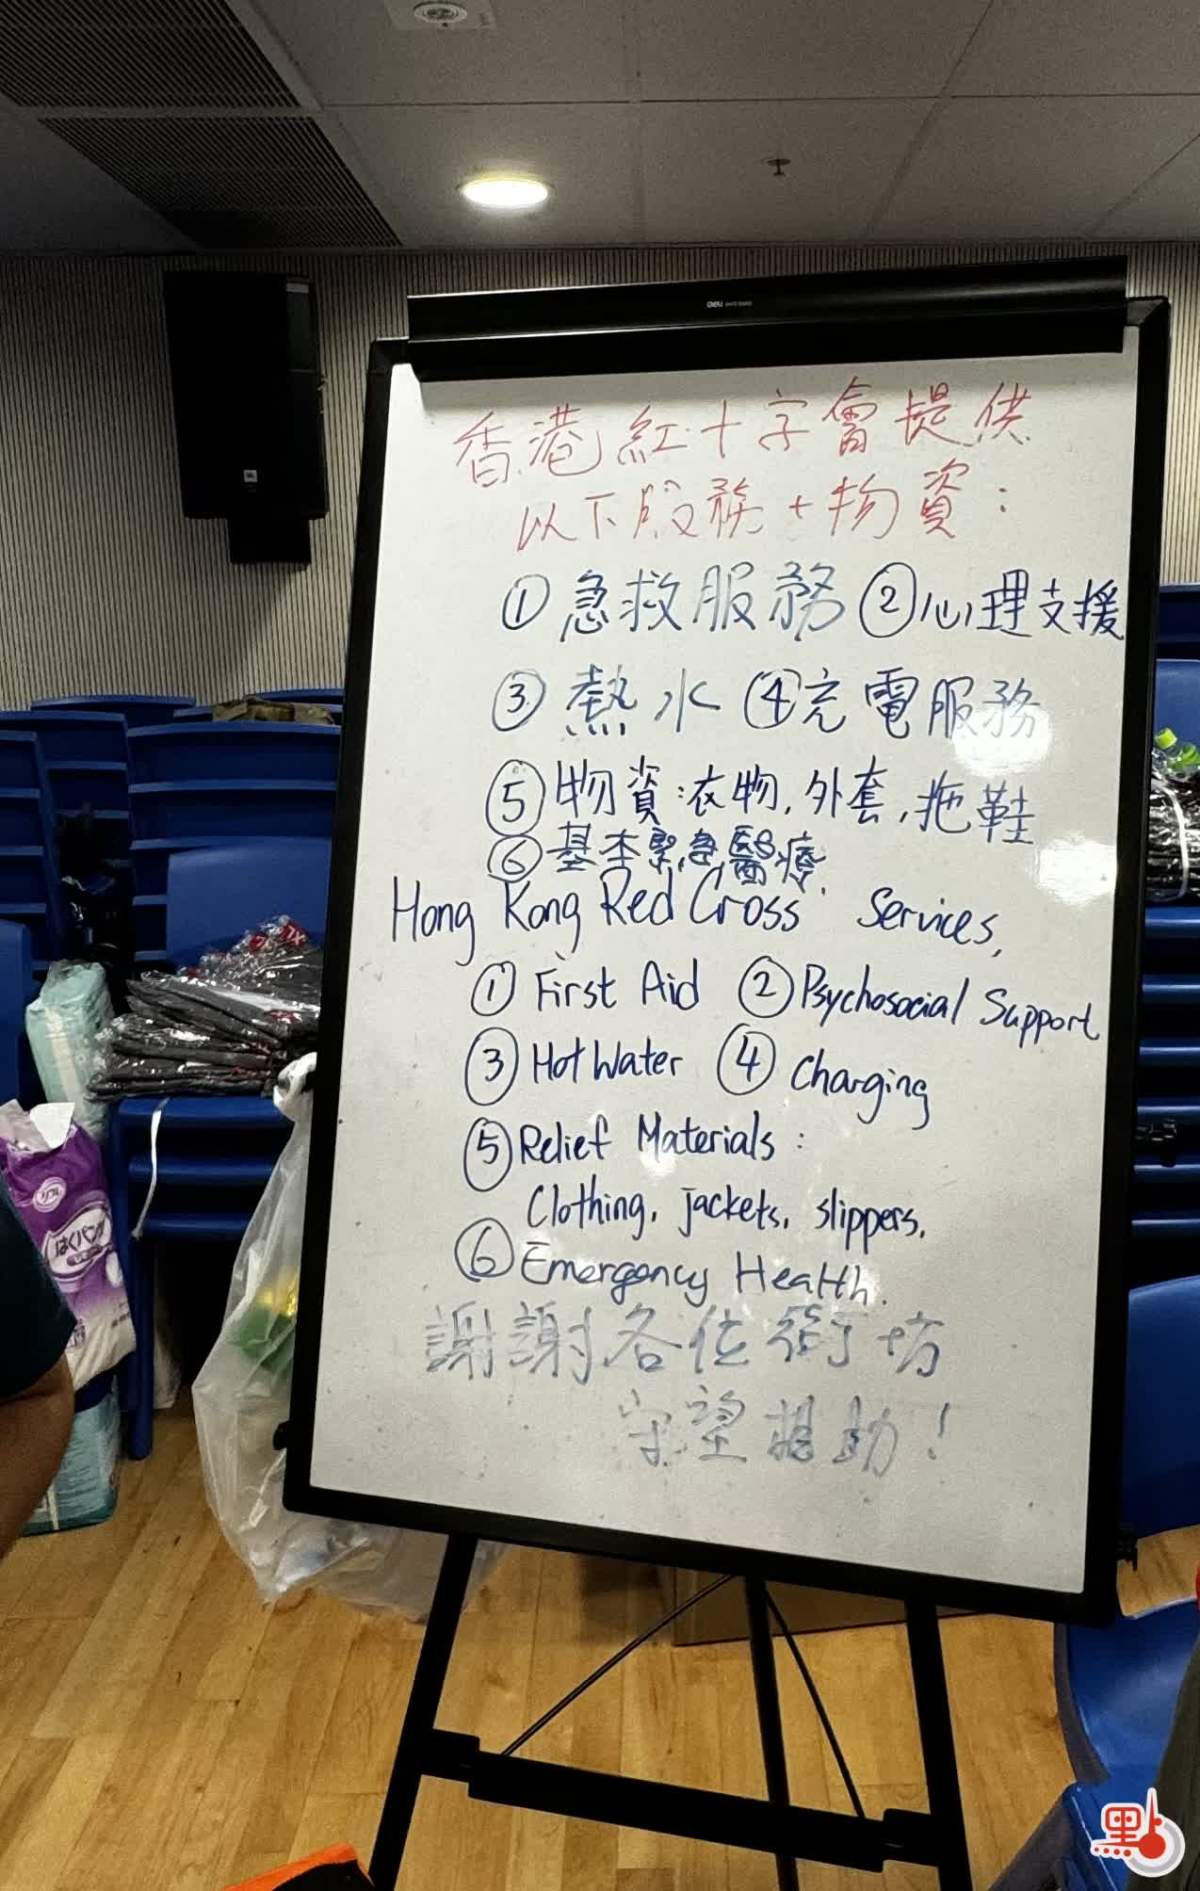 deli
香港紅十字會提供
以下服務+物資：
①急救服務 ②心理支援
③熱水 ④充電服務
⑤物資：衣物，外套，拖鞋
⑥基本緊急醫療.
Hong Kong Red Cross Services,
① First Aid ② Psychosocial Support
③ Hot Water ④ Charging
⑤ Relief Materials :
Clothing, jackets, slippers.
⑥ Emergency Health.
謝謝各位街坊
守望相助！
はくパンツ
點